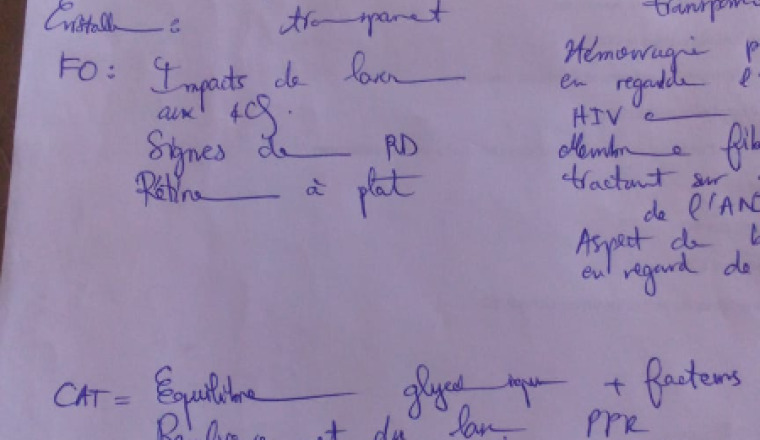 Cristallin : transparent transpa
FO : Impacts de laser
aux 4Q.
Signes de RD
Rétine à plat
Hémorragie p
en regard de l'
HIV
Membrane fib
tractant sur
de l'AN
Aspect de
en regard de
CAT = Equilibre glycémique + facteurs
du laser PPR